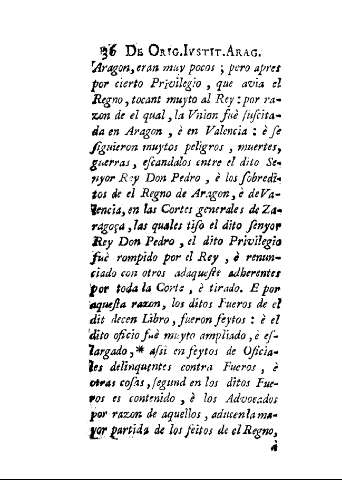 36 DE ORIG. IVSTIT. ARAG.
Aragon, eran muy pocos ; pero apres
por cierto Privilegio , que avia el
Regno, tocant muyto al Rey : por ra-
zon de el qual, la Vnion fuè suscita-
da en Aragon , è en Valencia : è se
siguieron muytos peligros , muertes,
guerras , escandalos entre el dito Se-
nyor Rey Don Pedro , è los sobredi-
tos de el Regno de Aragon, è de Va-
lencia, en las Cortes generales de Za-
ragoça , las quales tiso el dito senyor
Rey Don Pedro , el dito Privilegio
fuè rompido por el Rey , è renun-
ciado con otros adaqueste adherentes
por toda la Corte , è tirado. E por
aquesta razon, los ditos Fueros de el
dit decen Libro , fueron feytos : è el
dito oficio fuè muyto ampliado , è es-
largado , * assi en feytos de Oficia-
les delinquentes contra Fueros , è
otras cosas , segund en los ditos Fue-
ros es contenido , è los Advocados
por razon de aquellos , aducen la ma-
yor partida de los feitos de el Regno,
à